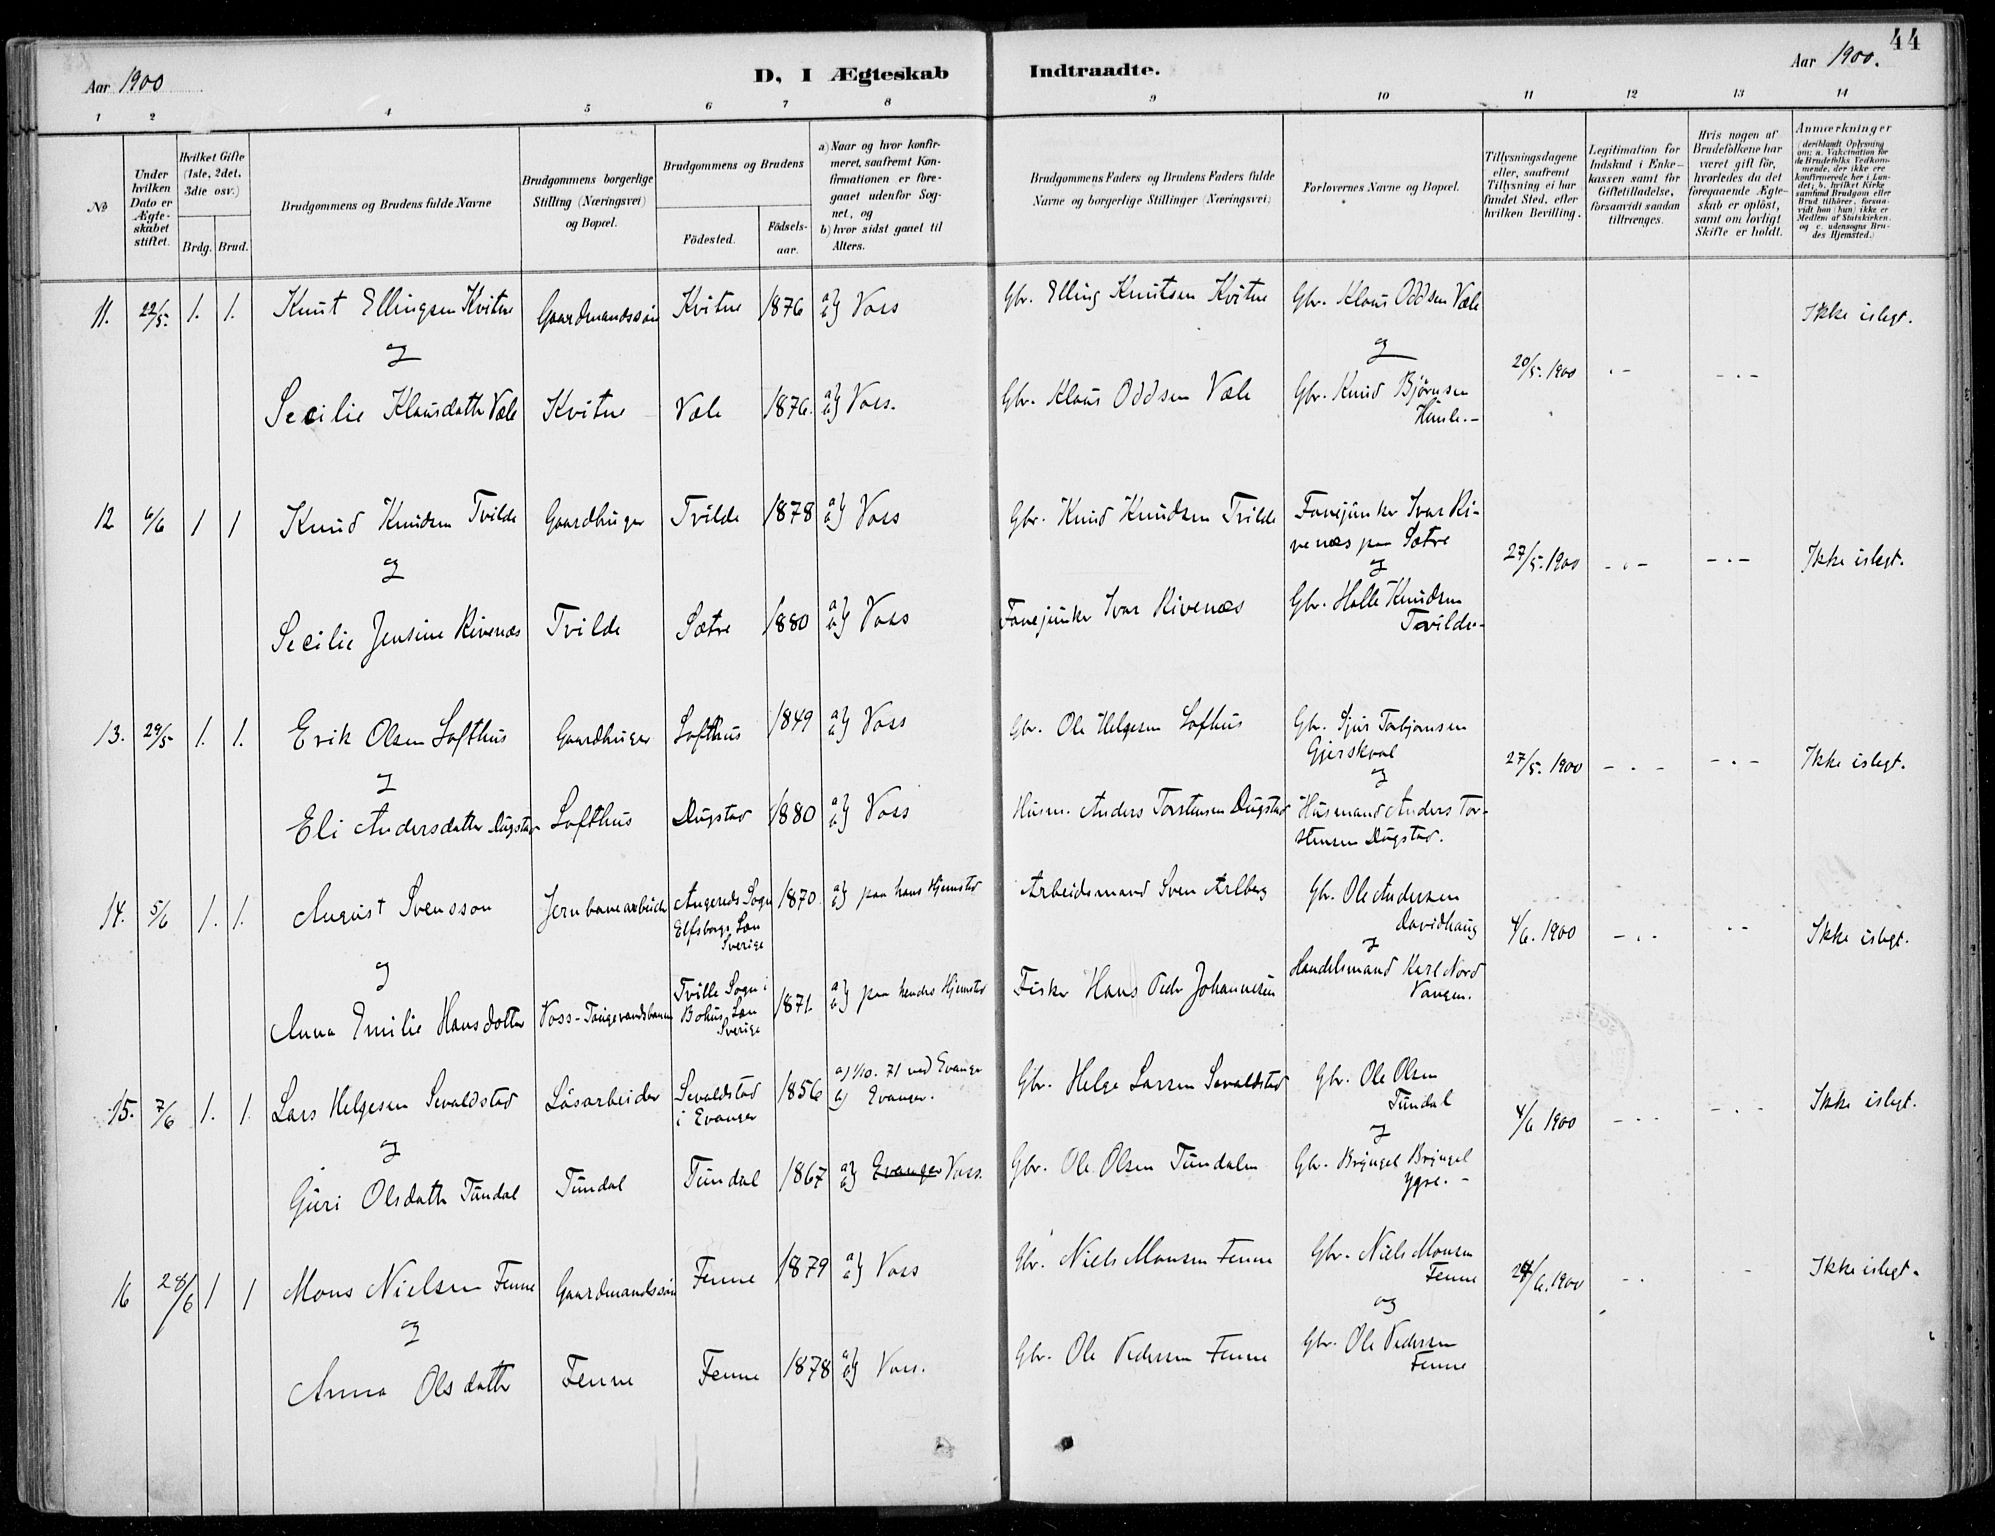 44
Aar 1900
D, I Ægteskab Indtraadte.
Aar 1900.
1 2 4 5 6 7 8 9 10 11 12 13 14
No
Under hvilken Dato er Ægteskabet stiftet.
Hvilket Gifte (1ste, 2det, 3die osv.)
Brdg. Brud.
Brudgommens og Brudens fulde Navne
Brudgommens borgerlige Stilling (Næringsvei) og Bopæl.
Brudgommens og Brudens
Födested. Födsels-aar.
a) Naar og hvor konfirmeret, saafremt Konfirmationen er foregaaet udenfor Sognet, og
b) hvor sidst gaaet til Alters.
Brudgommens Faders og Brudens Faders fulde Navne og borgerlige Stillinger (Næringsvei)
Forlovernes Navne og Bopæl.
Tillysningsdagene eller, saafremt Tillysning ei har fundet Sted, efter hvilken Bevilling.
Legitimation for Indskud i Enkekassen samt for Giftetilladelse, forsaavidt saadan tiltrænges.
Hvis nogen af Brudefolkene har været gift før, hvorledes da det foregaaende Ægteskab er oplöst, samt om lovligt Skifte er holdt.
Anmærkninger (deriblandt Oplysning om: a. Vakcination for de Brudefolks Vedkommende, der ikke ere konfirmerede her i Landet; b. hvilket Kirkesamfund Brudgom eller Brud tilhörer, forsaavidt han (hun) ikke er Medlem af Statskirken, og c. udensogns Brudes Hjemsted.)
11. 22/5. 1. 1. Knut Ellingsen Kvitne Gaardmandssön Kvitne 1876 a) b) Voss Gbr. Elling Knutsen Kvitne Gbr. Klaus Oddsen Væle Ikke islegt.
og og
20/5. 1900 . - - . -
Secilie Klausdattr Væle Kvitne Væle 1876. a) b) Voss. Gbr. Klaus Oddsen Væle Gbr. Knud Bjørnsen
Himle. -
12 6/6 1 1 Knud Knudsen Tvilde Gaardbruger Tvilde 1878 a) b) Voss Gbr. Knud Knudsen Tvilde Fanejunker Ivar Ri-
venæs paa Sætre
og og 27/5. 1900 - . - - . - Ikke islegt.
Secilie Jensine Rivenæs Tvilde Sætre 1880 a) b) Voss Fanejunker Ivar Rivenæs Gbr. Halle Knudsen
Tvilde-
13. 29/5 1. 1. Erik Olsen Lofthus Gaardbruger Lofthus 1849 a) b) Voss Gbr. Ole Helgesen Lofthus Gbr. Sjur Torbjørnsen
Gjerskval
og og 27/5. 1900 - . - - . - Ikke islegt.
Eli Andersdatter Dugstad Lofthus Dugstad 1880 a) b) Voss Husm. Anders Torstensen Dugstad Husmand Anders Tor-
stensen Dugstad.
14. 5/6 1. 1. August Svensson Jernbanearbeider Angereds Sogn 1870 a) b) paa hans Hjemsted Arbeidsmand Sven Arlberg Gbr. Ole Andersen
Elfsborgs Län Davidhaug
Sverige
og og 4/6. 1900 - . . . - Ikke islegt.
Anna Emilie Hansdotter Voss-Taugevandsbanen Tville Sogn i 1871. a) b) paa hendes Hjemsted Fisker Hans Pedr Johannesen Handelsmand Karl Nord
Bohus Län Vangen.
Sverige
15. 7/6 1. 1 Lars Helgesen Sevaldstad Lösarbeider Sevaldstad 1856 a) 1/10. 71 ved Evanger Gbr. Helge Larsen Sevaldstad Gbr. Ole Olsen
i Evanger b) Evanger. Tundal
og og 4/6 1900 - . . - . - Ikke islegt.
Guri Olsdattr Tundal Tundal Tundal 1867 a) b) Evanger Voss. Gbr. Ole Olsen Tundalen Gbr. Bryngel Bryngel
Ygre. -
16 28/6 1 1 Mons Nielsen Fenne Gaardmandssön Fenne 1879 a) b) Voss Gbr. Niels Monsen Fenne Gbr. Niels Monsen
Fenne 24/6. 1900 - . - Ikke islegt.
og og
Anna Olsdattr Fenne Fenne 1878 a) b) Voss. Gbr. Ole Pedersen Fenne Gbr. Ole Pedersen
Fenne